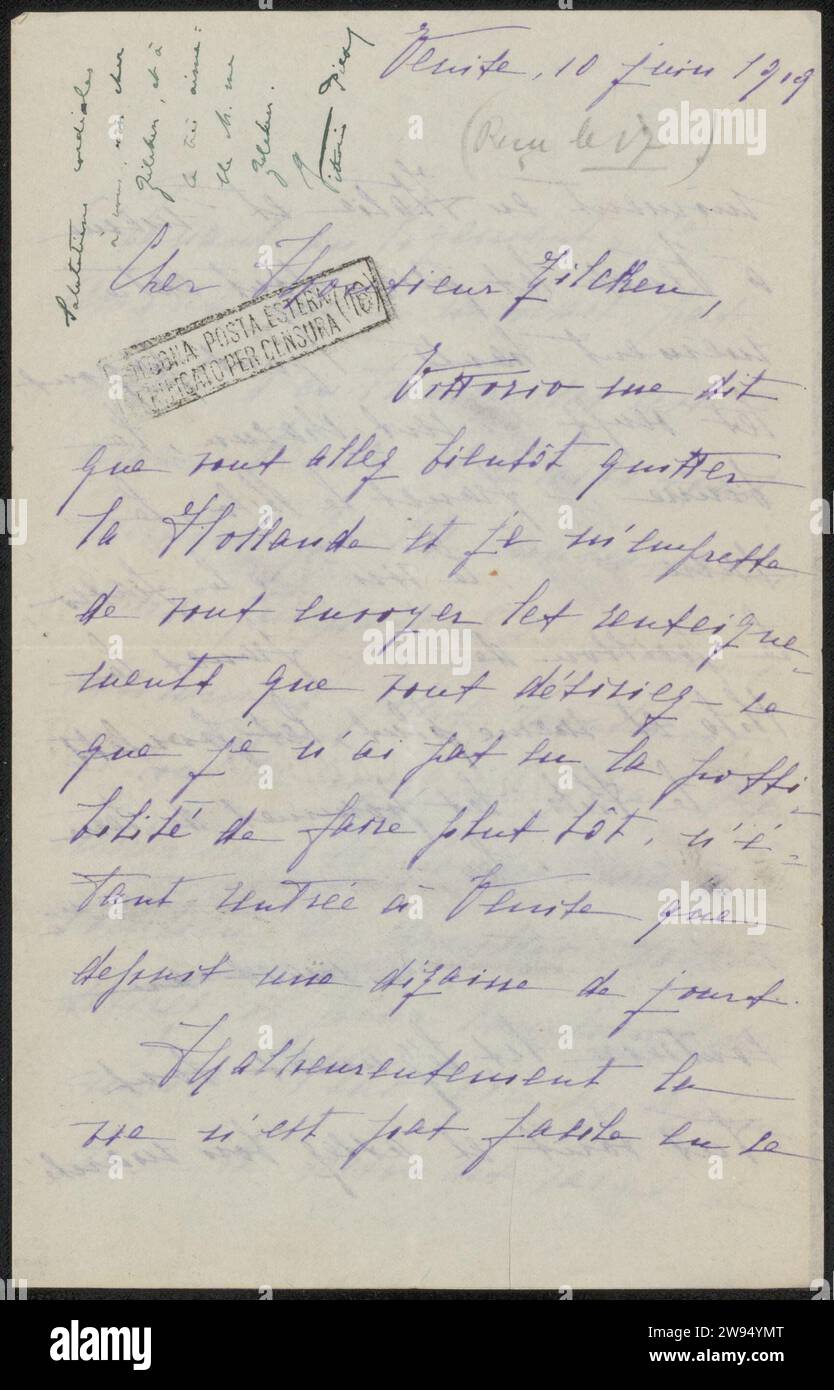 Venise, 10 juin 1919
(Reçu le 17)
Salutations cordiales
à vous, mon cher
Zilcken, et à
la très aimée
de M. me
Zilcken.
Vittorio Pica
Cher Monsieur Zilcken,
BOLOGNA POSTA ESTERA
VERIFICATO PER CENSURA (16)
Vittorio me dit
que vous allez bientôt quitter
la Hollande et je m'empresse
de vous envoyer les renseigne-
ments que vous désiriez – ce
que je n'ai pas eu la possi-
bilité de faire plus tôt, n'é-
tant rentrée à Venise que
depuis une dizaine de jours.
Malheureusement la
vie n'est pas facile en ce
alamy
alamy
Image ID: 2W94YMT
www.alamy.com